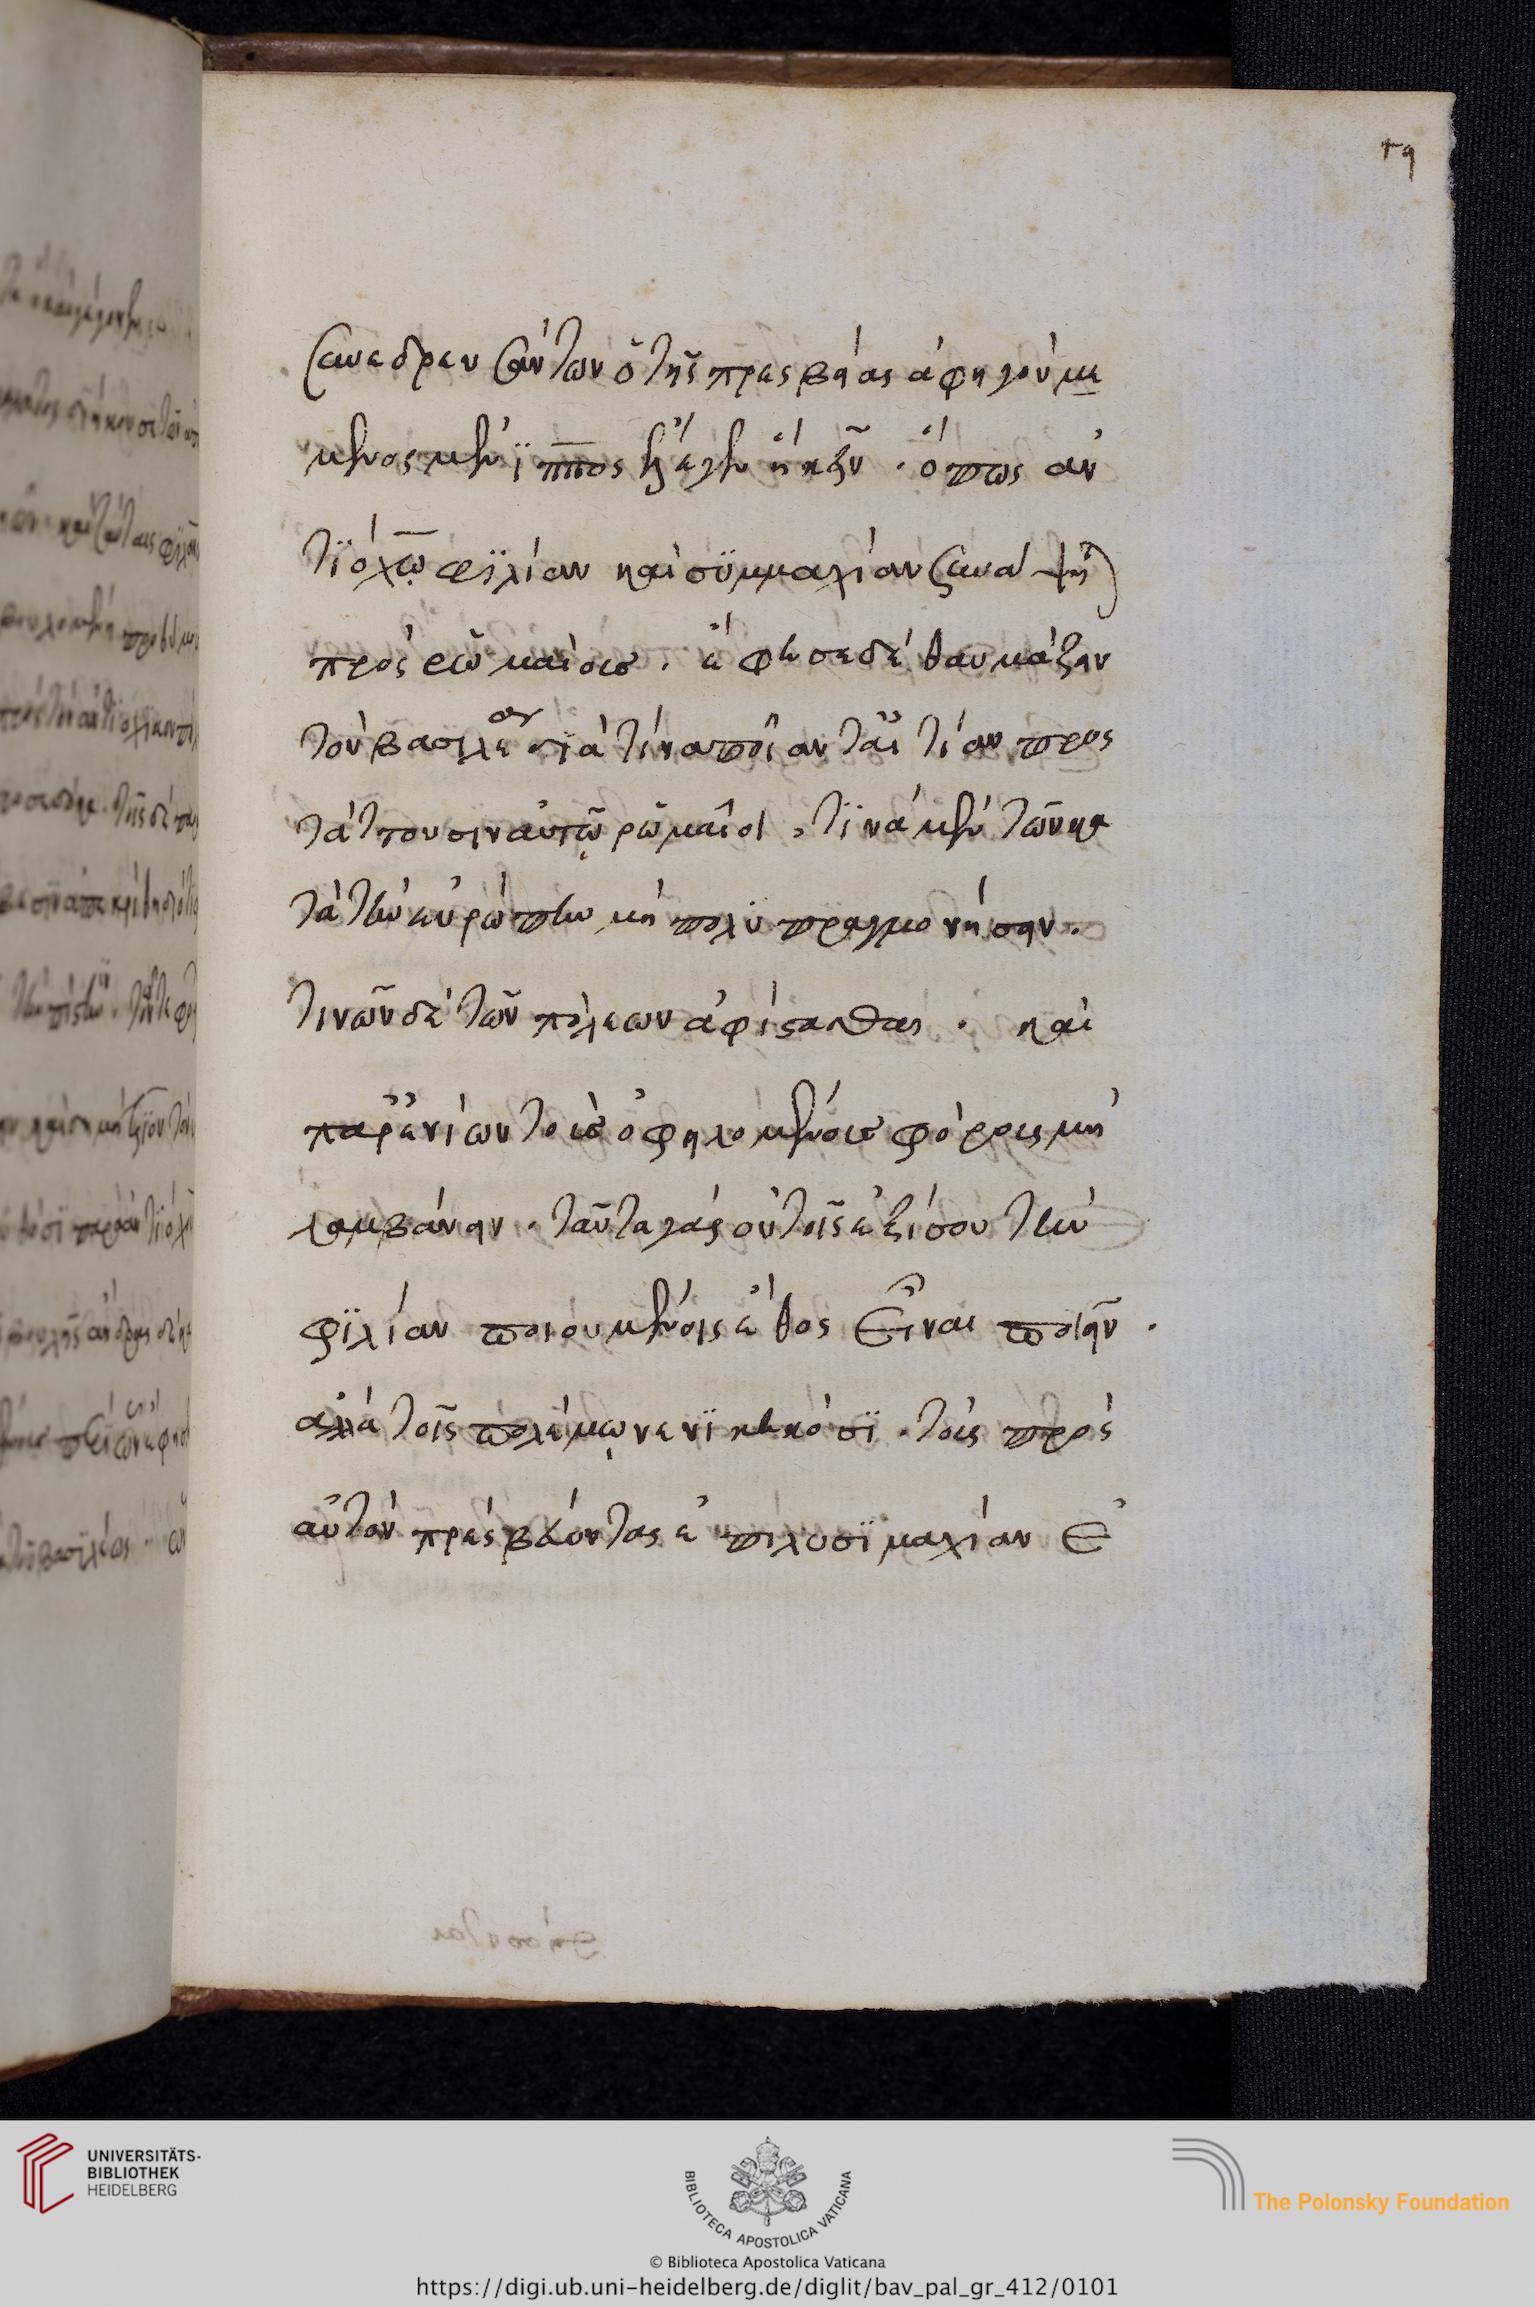 49
συνεδρευσάντων ὁ τῆς πρεσβείας ἀφηγούμε
μενος μένϊππος ἔλεγεν ἥκειν . ὅπως ἀν
τϊόχω φϊλίαν καὶ σϋμμαχίαν συνάψῃ
πρὸς ῥωμαίοις . ἔφησε δὲ θαυμάζειν
τὸν βασιλέα δϊὰ τίνα ποῖαν τ' αἰτίαν προσ
τάττουσιν αὐτῷ ῥωμαῖοι , τϊνὰ μὲν τῶν κα
τὰ τὴν εὐρώπην μὴ πολϋπραγμονήσειν .
τινῶν δὲ τῶν πόλεων ἀφίστασθαι . καὶ
παρ' ἐνίων τοὺς ὀφειλομένους φόρους μὴ
λαμβάνειν . ταῦτα γὰρ οὐ τοῖς ἐξίσου τὴν
φϊλίαν ποιουμένοις ἔθος εἶναι ποιεῖν .
ἀλλὰ τοῖς πολέμῳ νενϊκηκόσϊ . τοὺς πρὸς
αὐτὸν πρεσβεύοντας ἐπιλυσϊμαχίαν ἐ
UNIVERSITÄTS-
BIBLIOTHEK
HEIDELBERG
BIBLIOTECA APOSTOLICA VATICANA
The Polonsky Foundation
© Biblioteca Apostolica Vaticana
https://digi.ub.uni-heidelberg.de/diglit/bav_pal_gr_412/0101